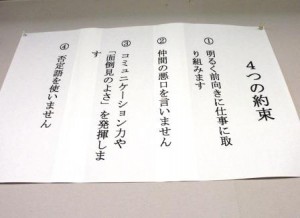 ４つの約束
① 明るく前向きに仕事に取
り組みます
② 仲間の悪口を言いません
③ コミュニケーション力や
「面倒見のよさ」を発揮しま
す
④ 否定語を使いません